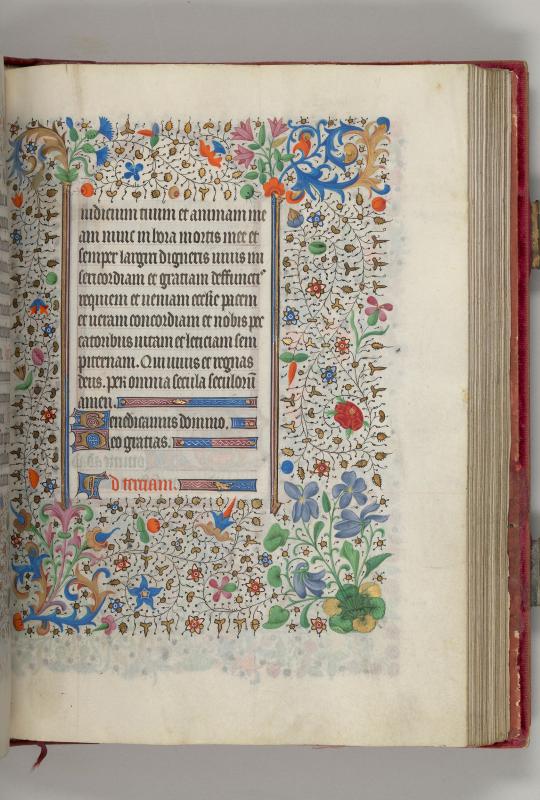 iudicium tuum et animam me
am nunc in hora mortis mee et
semper largiri digneris uiuis mi
sericordiam et gratiam deffunctis
requiem et ueniam ecclie pacem
et ueram concordiam et nobis pec
catoribus uitam et leticiam sem
piternam. Qui uiuis et regnas
deus. per omnia secula seculorū
amen.
Benedicamus domino,
Deo gratias.
Ad terciam.